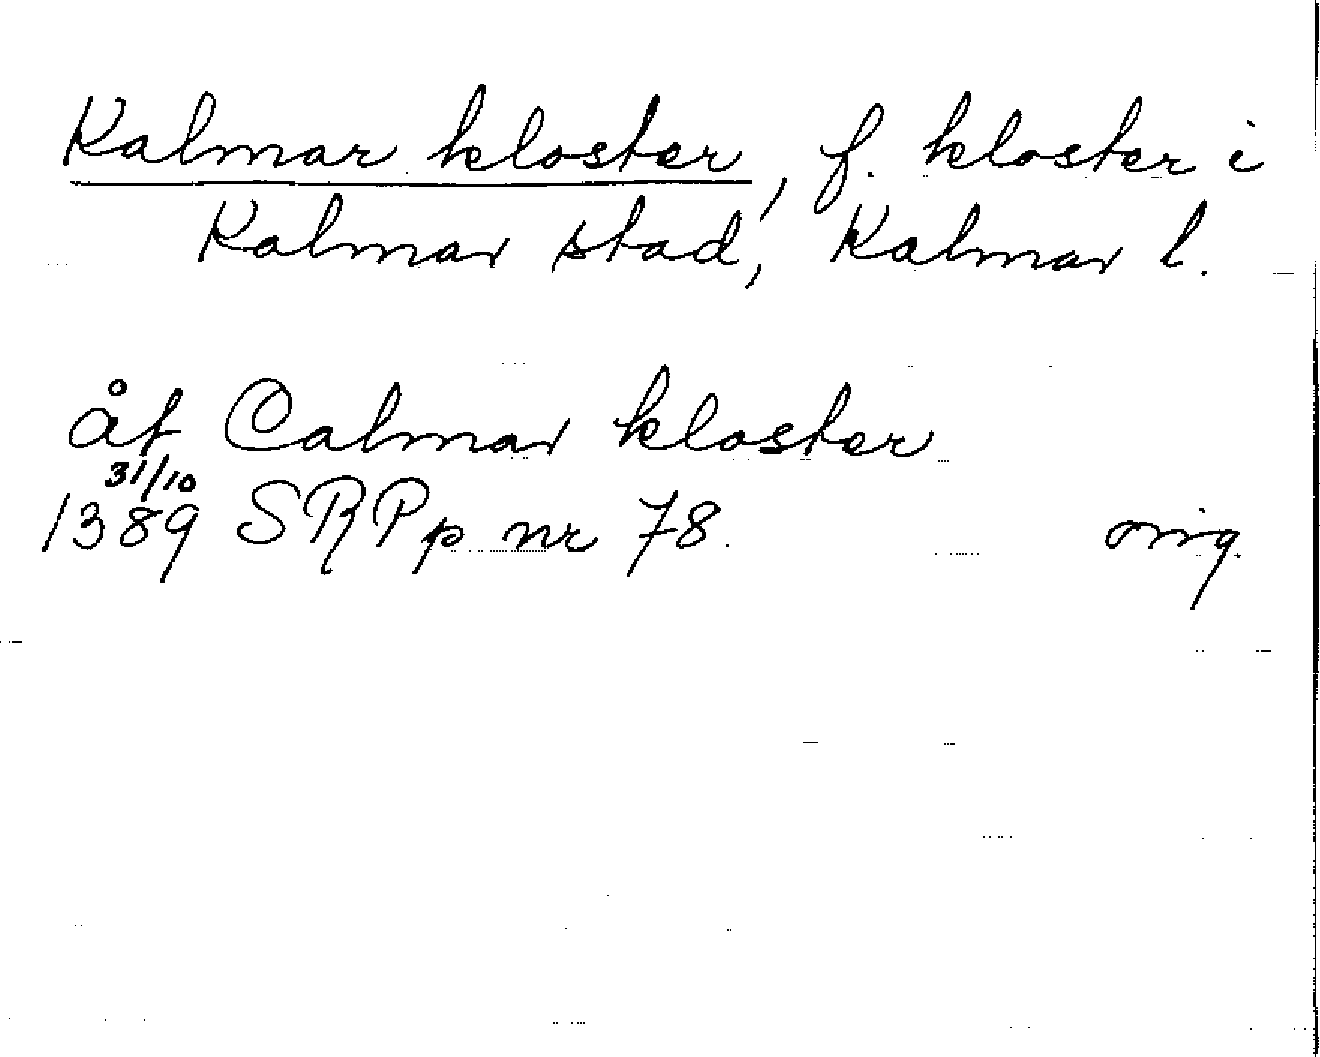 Kalmar kloster, f. kloster i
Kalmar stad, Kalmar l.
åt Calmar kloster
31/10
1389 SRPp nr 78. orig.